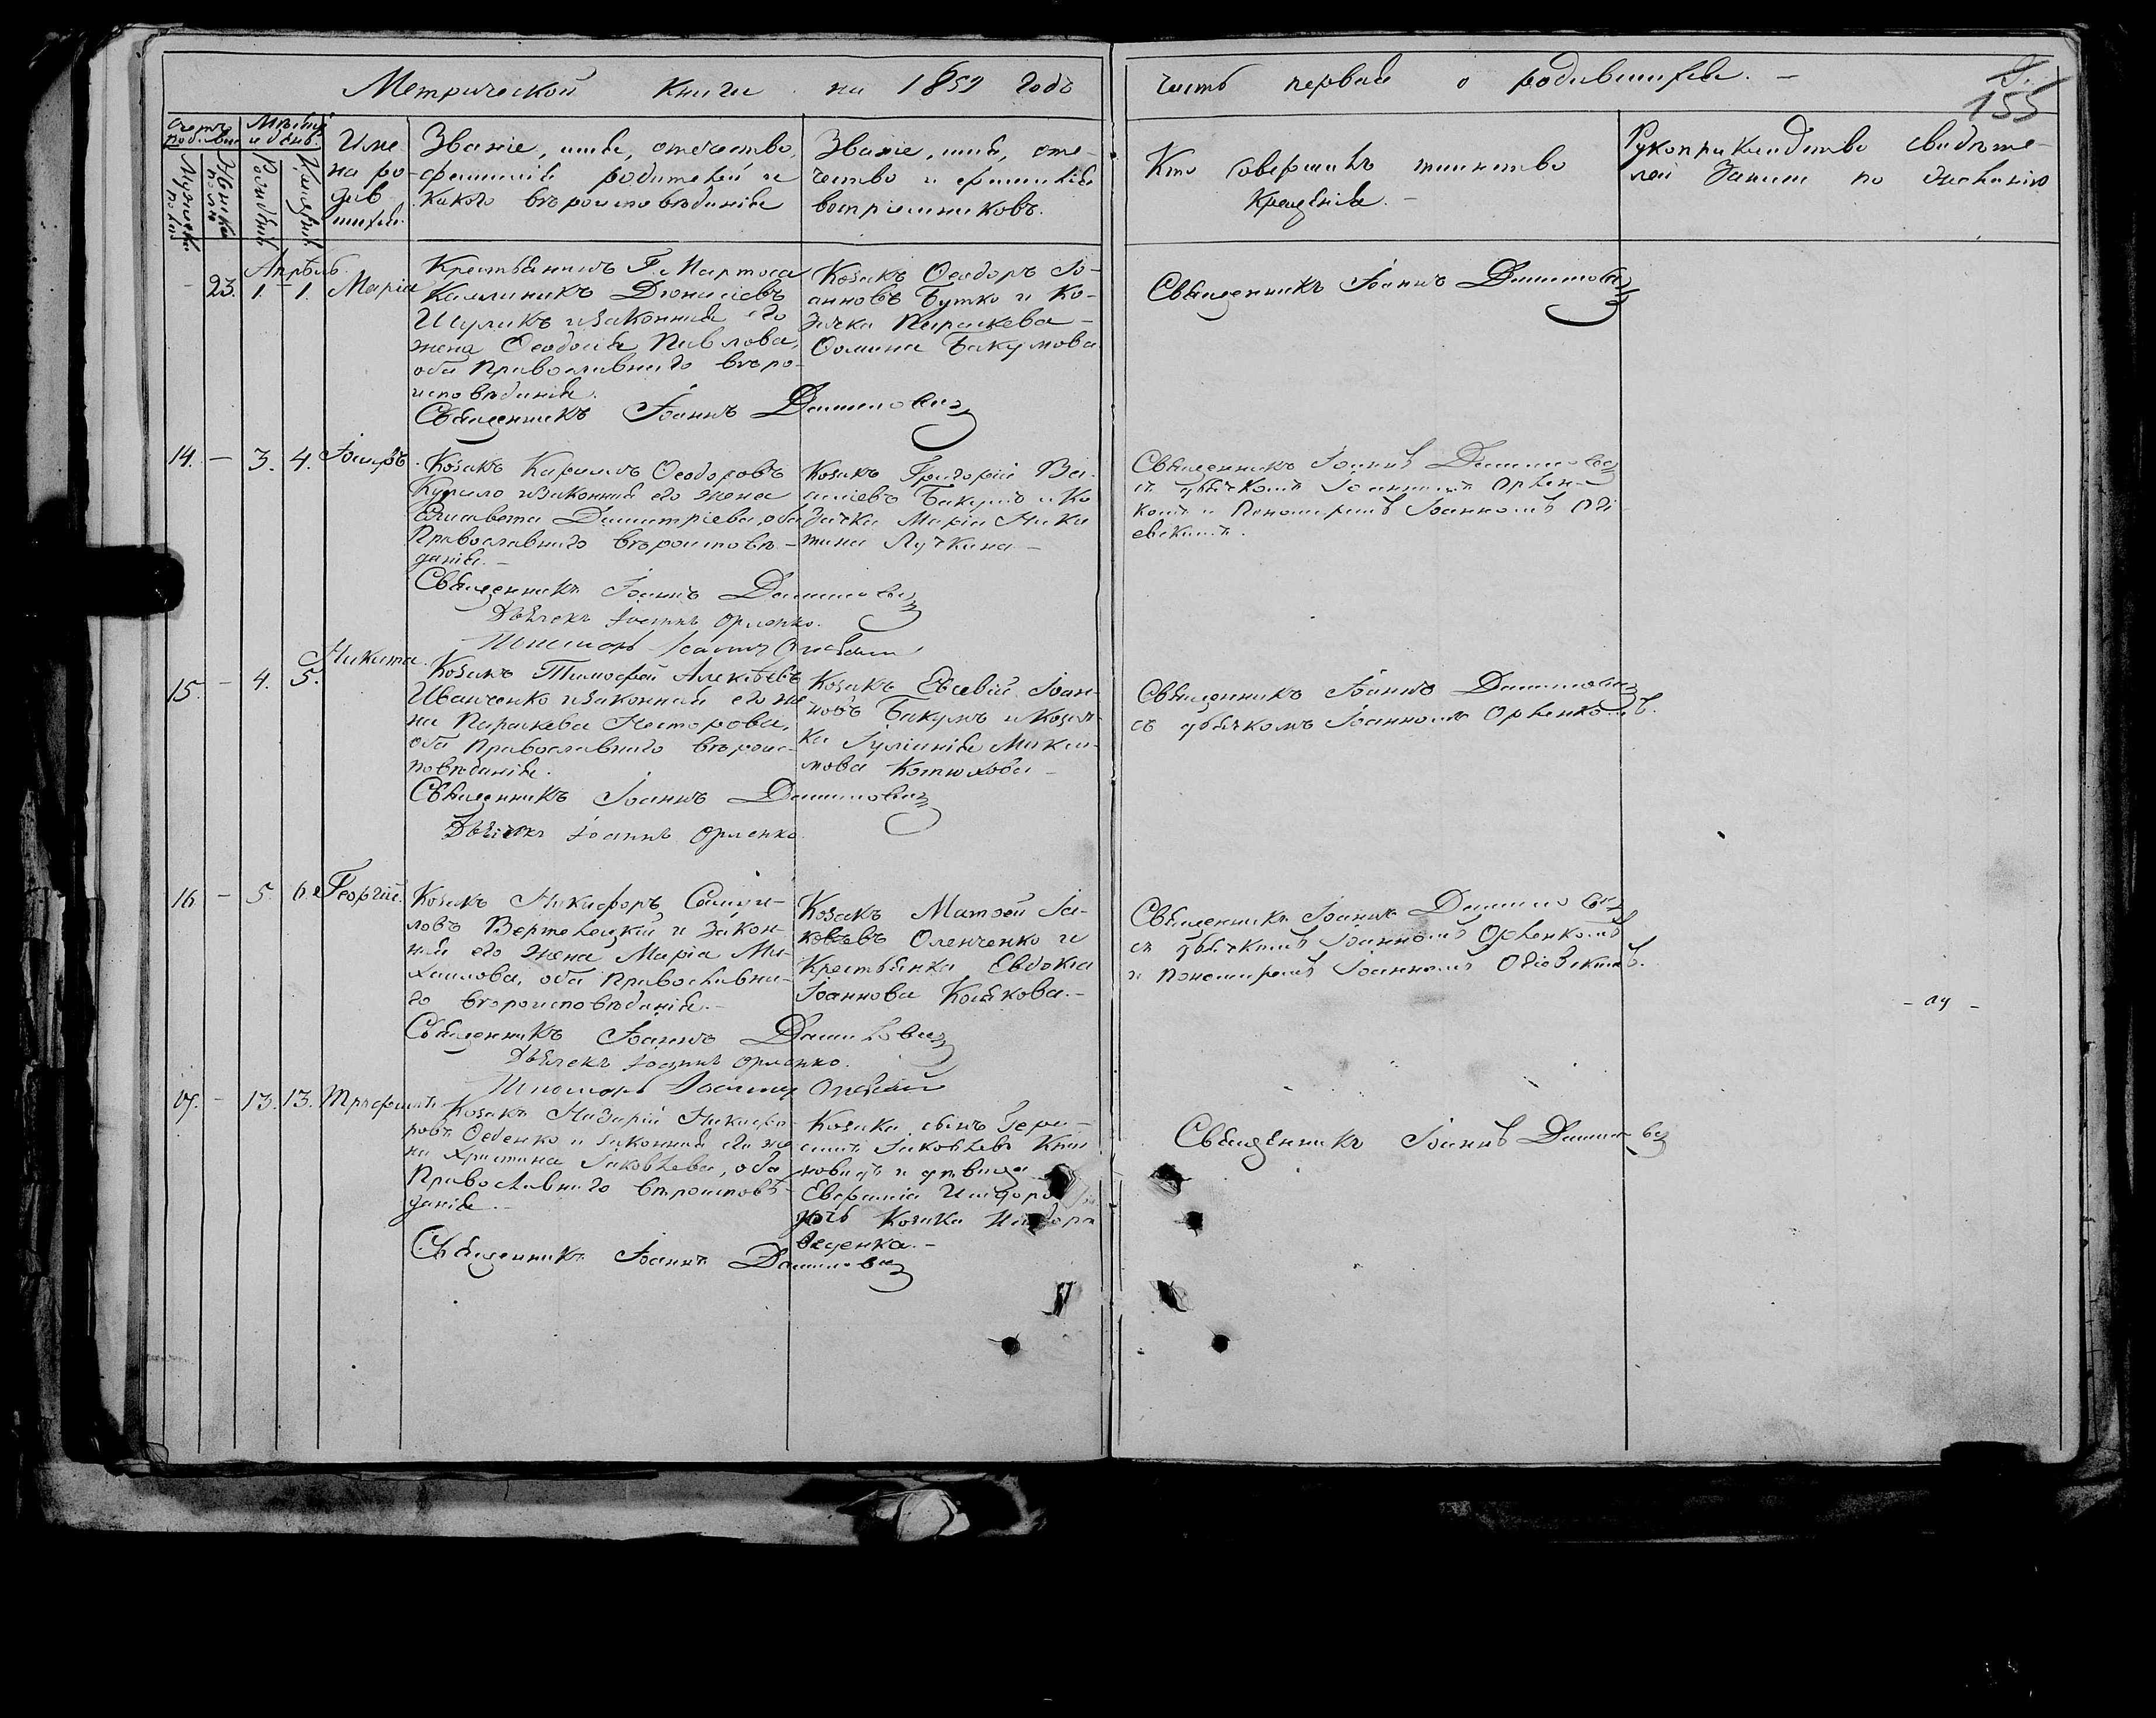 Метрической Книги на 1859 годъ
часть первая о родившихся. –
155
Счетъ родивш.
Мѣсяцъ и день.
Мужеска пола
Женска пола
Рожденія
Крещенія
Име-
на ро-
див
шихся.
Званіе, имя, отчество,
фамилія родителей и
какого вѣроисповѣданія
Званіе, имя, оте-
чество и фамилія
воспріемниковъ.
Кто совершалъ таинство
Крещенія. –
Рукоприкладство свидѣте-
лей записи по желанію
Апрѣль.
– 23. 1. – 1. Марія
Крестьянинъ Г. Мартоса
Каллиникъ Діонисіевъ
Шуликъ и законная его
жена Ѳеодосія Павлова,
оба Православнаго вѣро-
исповѣданія.
Священникъ Іоаннъ Даниловичъ
Козакъ Ѳеодоръ Іо-
анновъ Бутко и Ко-
зачка Параскева
Ѳомина Бакумова
Священникъ Іоаннъ Даниловичъ
14. – 3. 4. Іосифъ.
Козакъ Ѳеодоровъ
и законная его жена
Елисавета Димитріева, оба
Православнаго вѣроисповѣ-
данія. –
Священникъ Іоаннъ Даниловичъ
Дьячекъ Іоаннъ Орленко.
Козакъ Григорій Ва-
силіевъ Бакумъ и Ко
зачка Марія Ники
тина Лучкина –
Священникъ Іоаннъ Даниловичъ
съ дьячкомъ Іоанномъ Орлен-
комъ и Пономаремъ Іоанномъ
Никита.
15. – 4. 5.
Козакъ Тимофей Алексѣевъ
Иванченко и законная его же
на Параскева Несторова,
оба Православнаго вѣроис-
повѣданія.
Священникъ Іоаннъ Даниловичъ
Дьячекъ Іоаннъ Орленко.
Козакъ Евсевій Іоан-
новъ Бакумъ и Козач-
ка Іуліанія Макси-
мова Котюхова –
Священникъ Іоаннъ Даниловичъ
съ дьячкомъ Іоанномъ Орленкомъ.
16 – 5. 6. Георгій.
Козакъ Никифоръ Самуи-
ловъ Вертелецкій и Закон-
ная его жена Марія Ми-
хаилова, оба Православна-
го вѣроисповѣданія. –
Священникъ Іоаннъ Даниловичъ
Дьячекъ Іоаннъ Орленко.
Козакъ Матѳей Іа-
ковлевъ Оленченко и
Крестьянка Евдокія
Іоаннова Койкова. –
Священникъ Іоаннъ Даниловичъ
съ дьячкомъ Іоанномъ Орленкомъ
и пономаремъ Іоанномъ
17. – 13. 13. Трифилій
Козакъ Назарій Никифо-
ровъ и законная его же
на Христина Іаковлева, оба
Православнаго вѣроисповѣ-
данія. –
Священникъ Іоаннъ Даниловичъ
Козака сынъ Гера-
симъ Іаковлевъ
и дѣвица
Евфимія
дочь Козака
Священникъ Іоаннъ Даниловичъ